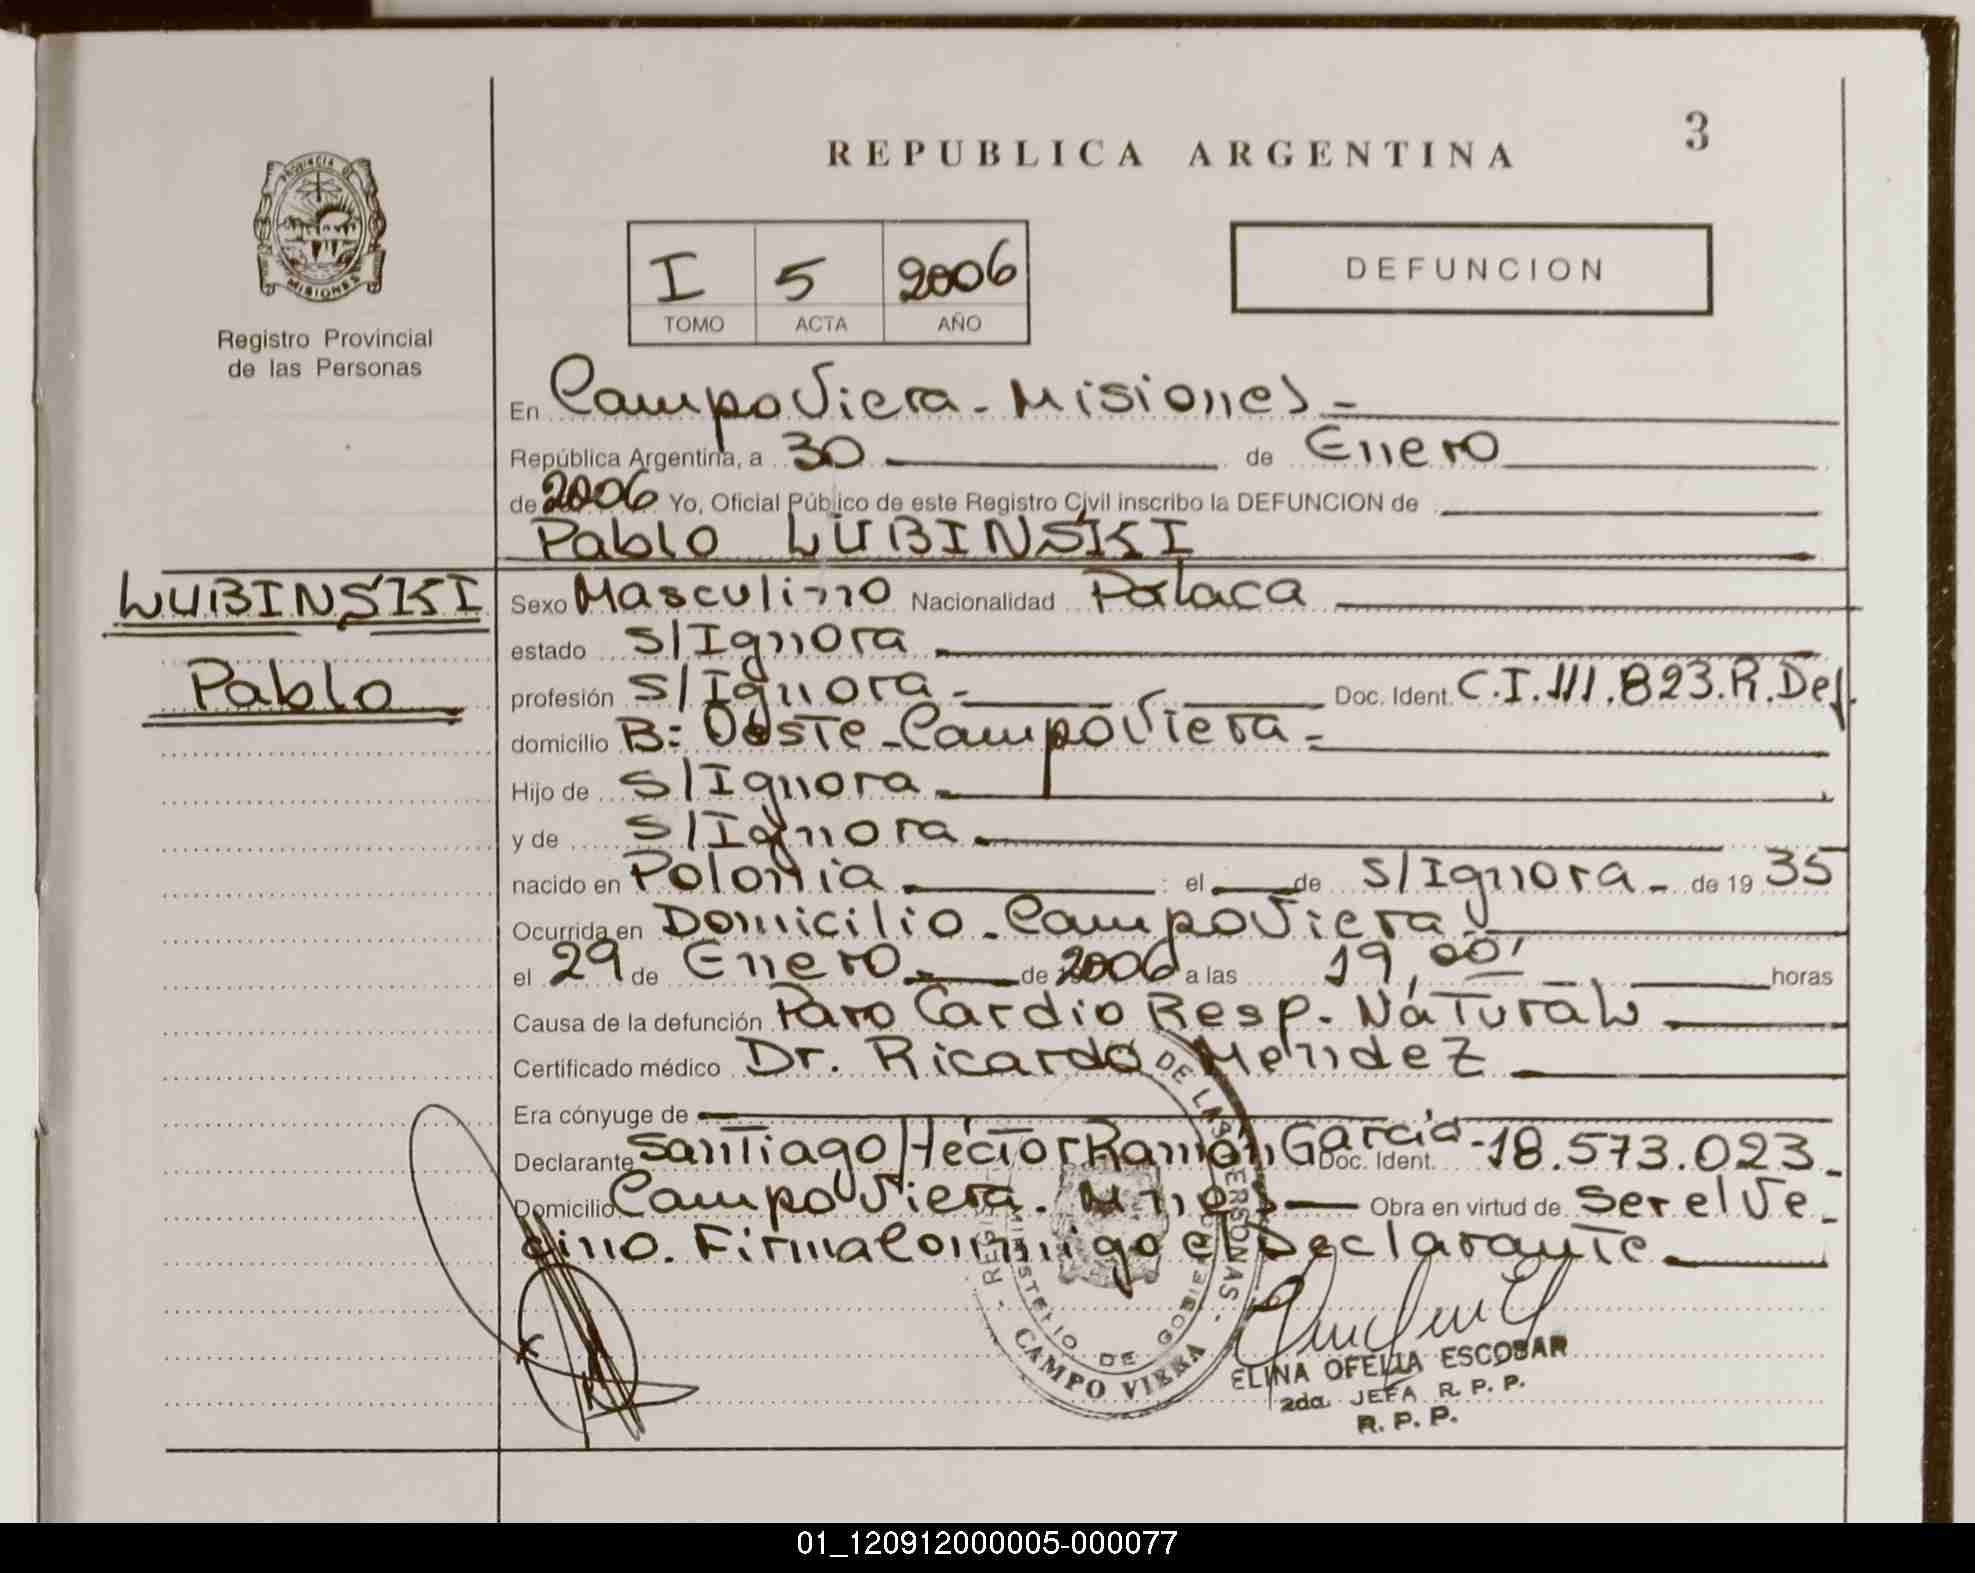 3
REPUBLICA ARGENTINA
PROVINCIA DE
MISIONES
Registro Provincial
de las Personas
I 5 2006
TOMO ACTA AÑO
DEFUNCION
En Campo Viera - Misiones -
República Argentina, a 30 de Enero
de 2006 Yo, Oficial Público de este Registro Civil inscribo la DEFUNCION de
Pablo LUBINSKI
LUBINSKI
Pablo
Sexo Masculino Nacionalidad Polaca
estado S/Ignora
profesión S/Ignora - Doc. Ident. C.I. 111.823.R.Def.
domicilio B: Oeste - Campo Viera -
Hijo de S/Ignora
y de S/Ignora
nacido en Polonia el de S/Ignora - de 19 35
Ocurrida en Domicilio - Campo Viera
el 29 de Enero de 2006 a las 19,00' horas
Causa de la defunción Paro Cardio Resp. Natural
Certificado médico Dr. Ricardo Mendez
Era cónyuge de
Declarante Santiago Héctor Ramón García - Doc. Ident. 18.573.023 -
Domicilio Campo Viera. Mnes Obra en virtud de Ser el Ve-
cino. Firma Conmigo el Declarante
DE LAS PERSONAS
MINISTERIO DE GOBIERNO
CAMPO VIERA
ELINA OFELIA ESCOBAR
2da. JEFA R. P. P.
R. P. P.
01_120912000005-000077